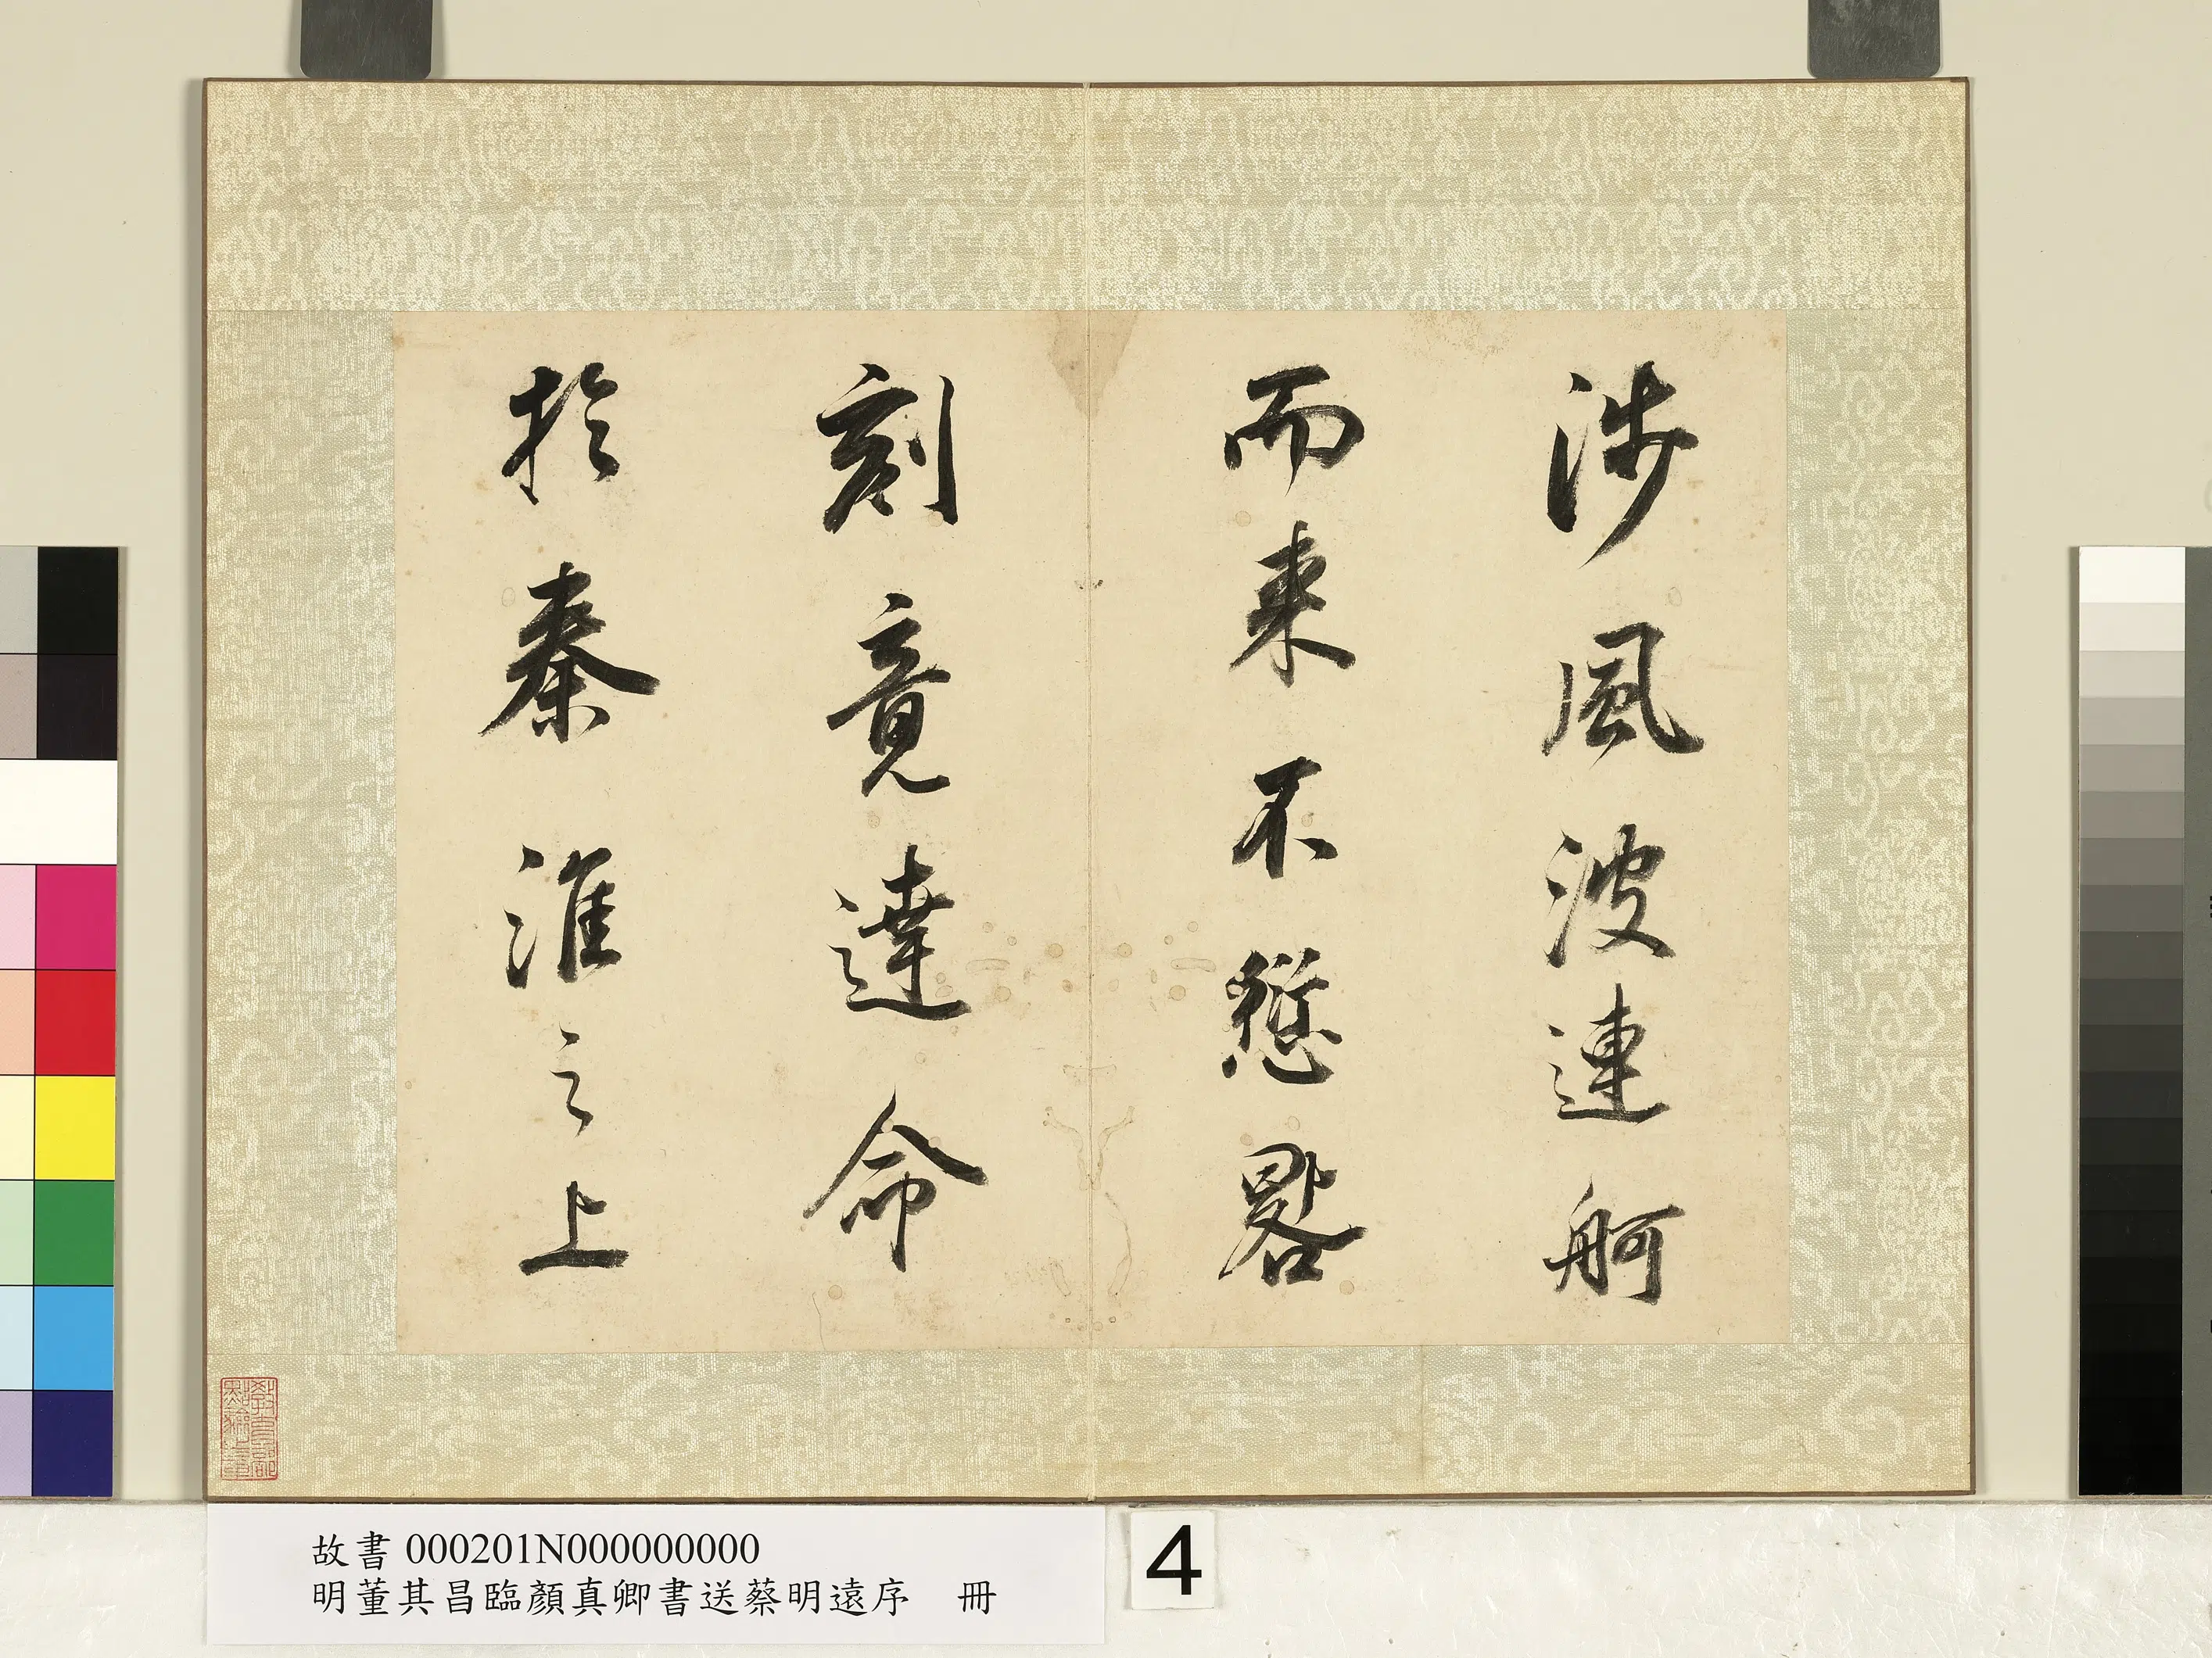 涉風波連舸
而来不愆畧
刻竟達命
於秦淮之上
故書000201N000000000
明董其昌臨顏真卿書送蔡明遠序　冊
4